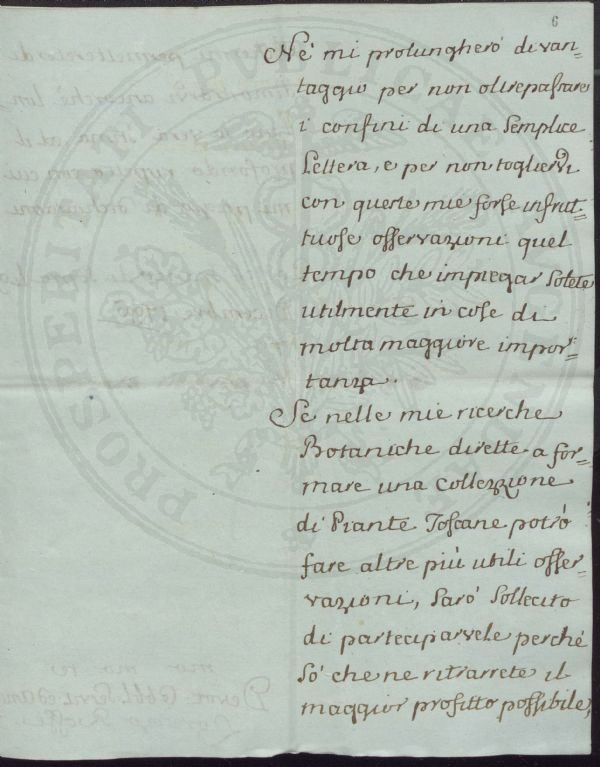 6
Nè mi prolungherò di van=
taggio per non oltrepassare
i confini di una semplice
Lettera, e per non toglierVi
con queste mie forse infrut=
tuose osservazioni quel
tempo che impiegar solete
utilmente in cose di
molta maggiore impor=
tanza.
Se nelle mie ricerche
Botaniche dirette a for=
mare una collezzione
di Piante Toscane potrò
fare altre più utili osser=
vazioni, sarò sollecito
di parteciparvele perchè
sò che ne ritrarrete il
maggior profitto possibile,
PROSPERITATI PUBLICAE